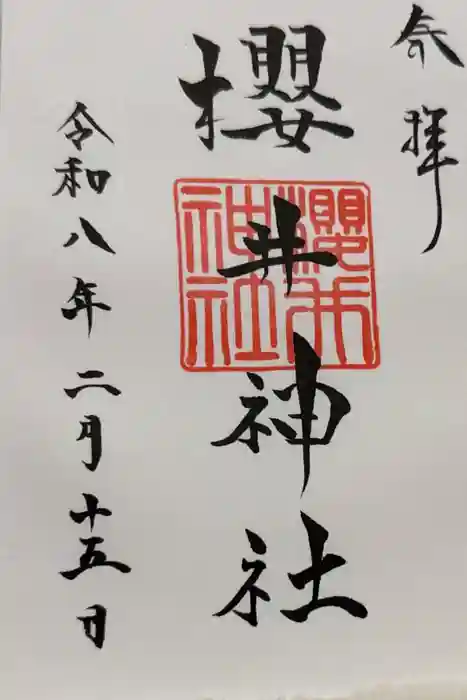 奉拝
櫻井神社
櫻井神社
令和八年二月十五日